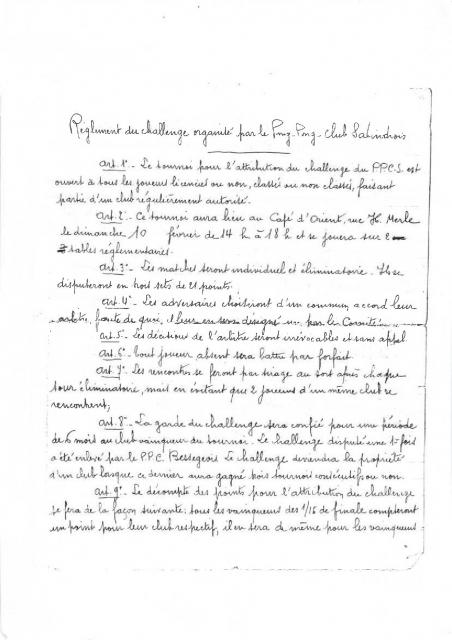 Réglement du challenge organisé par le Ping-Pong-Club Salindrois
art. 1° - Le tournoi pour l'attribution du challenge du P.P.C.S. est
ouvert à tous les joueurs licenciés ou non, classés ou non classés, faisant
partie d'un club régulièrement autorisé.
art. 2° - Ce tournoi aura lieu au Café d'Orient, rue H. Merle
le dimanche 10 février de 14 h à 18 h et se jouera sur 2
tables réglementaires.
art. 3° - Les matches seront individuel et éliminatoire. Ils se
disputeront en trois sets de 21 points.
art. 4° - Les adversaires choisiront d'un commun accord leur
arbitre, faute de quoi, il leur en sera désigné un par le Comité.
art. 5° - Les décisions de l'arbitre seront irrévocables et sans appel
art. 6° - tout joueur absent sera battu par forfait.
art. 7° - Les rencontres se feront par tirage au sort après chaque
tour éliminatoire, mais en évitant que 2 joueurs d'un même club se
rencontrent;
art. 8° - La garde du challenge sera confié pour une période
de 6 mois au club vainqueur du tournoi. Le challenge disputé une 1° fois
a été enlevé par le P.P.C. Bessegeois. Le challenge deviendra la propriété
d'un club lorsque ce dernier aura gagné trois tournois consécutifs ou non.
art. 9° - Le décompte des points pour l'attribution du challenge
se fera de la façon suivante: tous les vainqueurs des 1/16 de finale compteront
un point pour leur club respectif, il en sera de même pour les vainqueurs